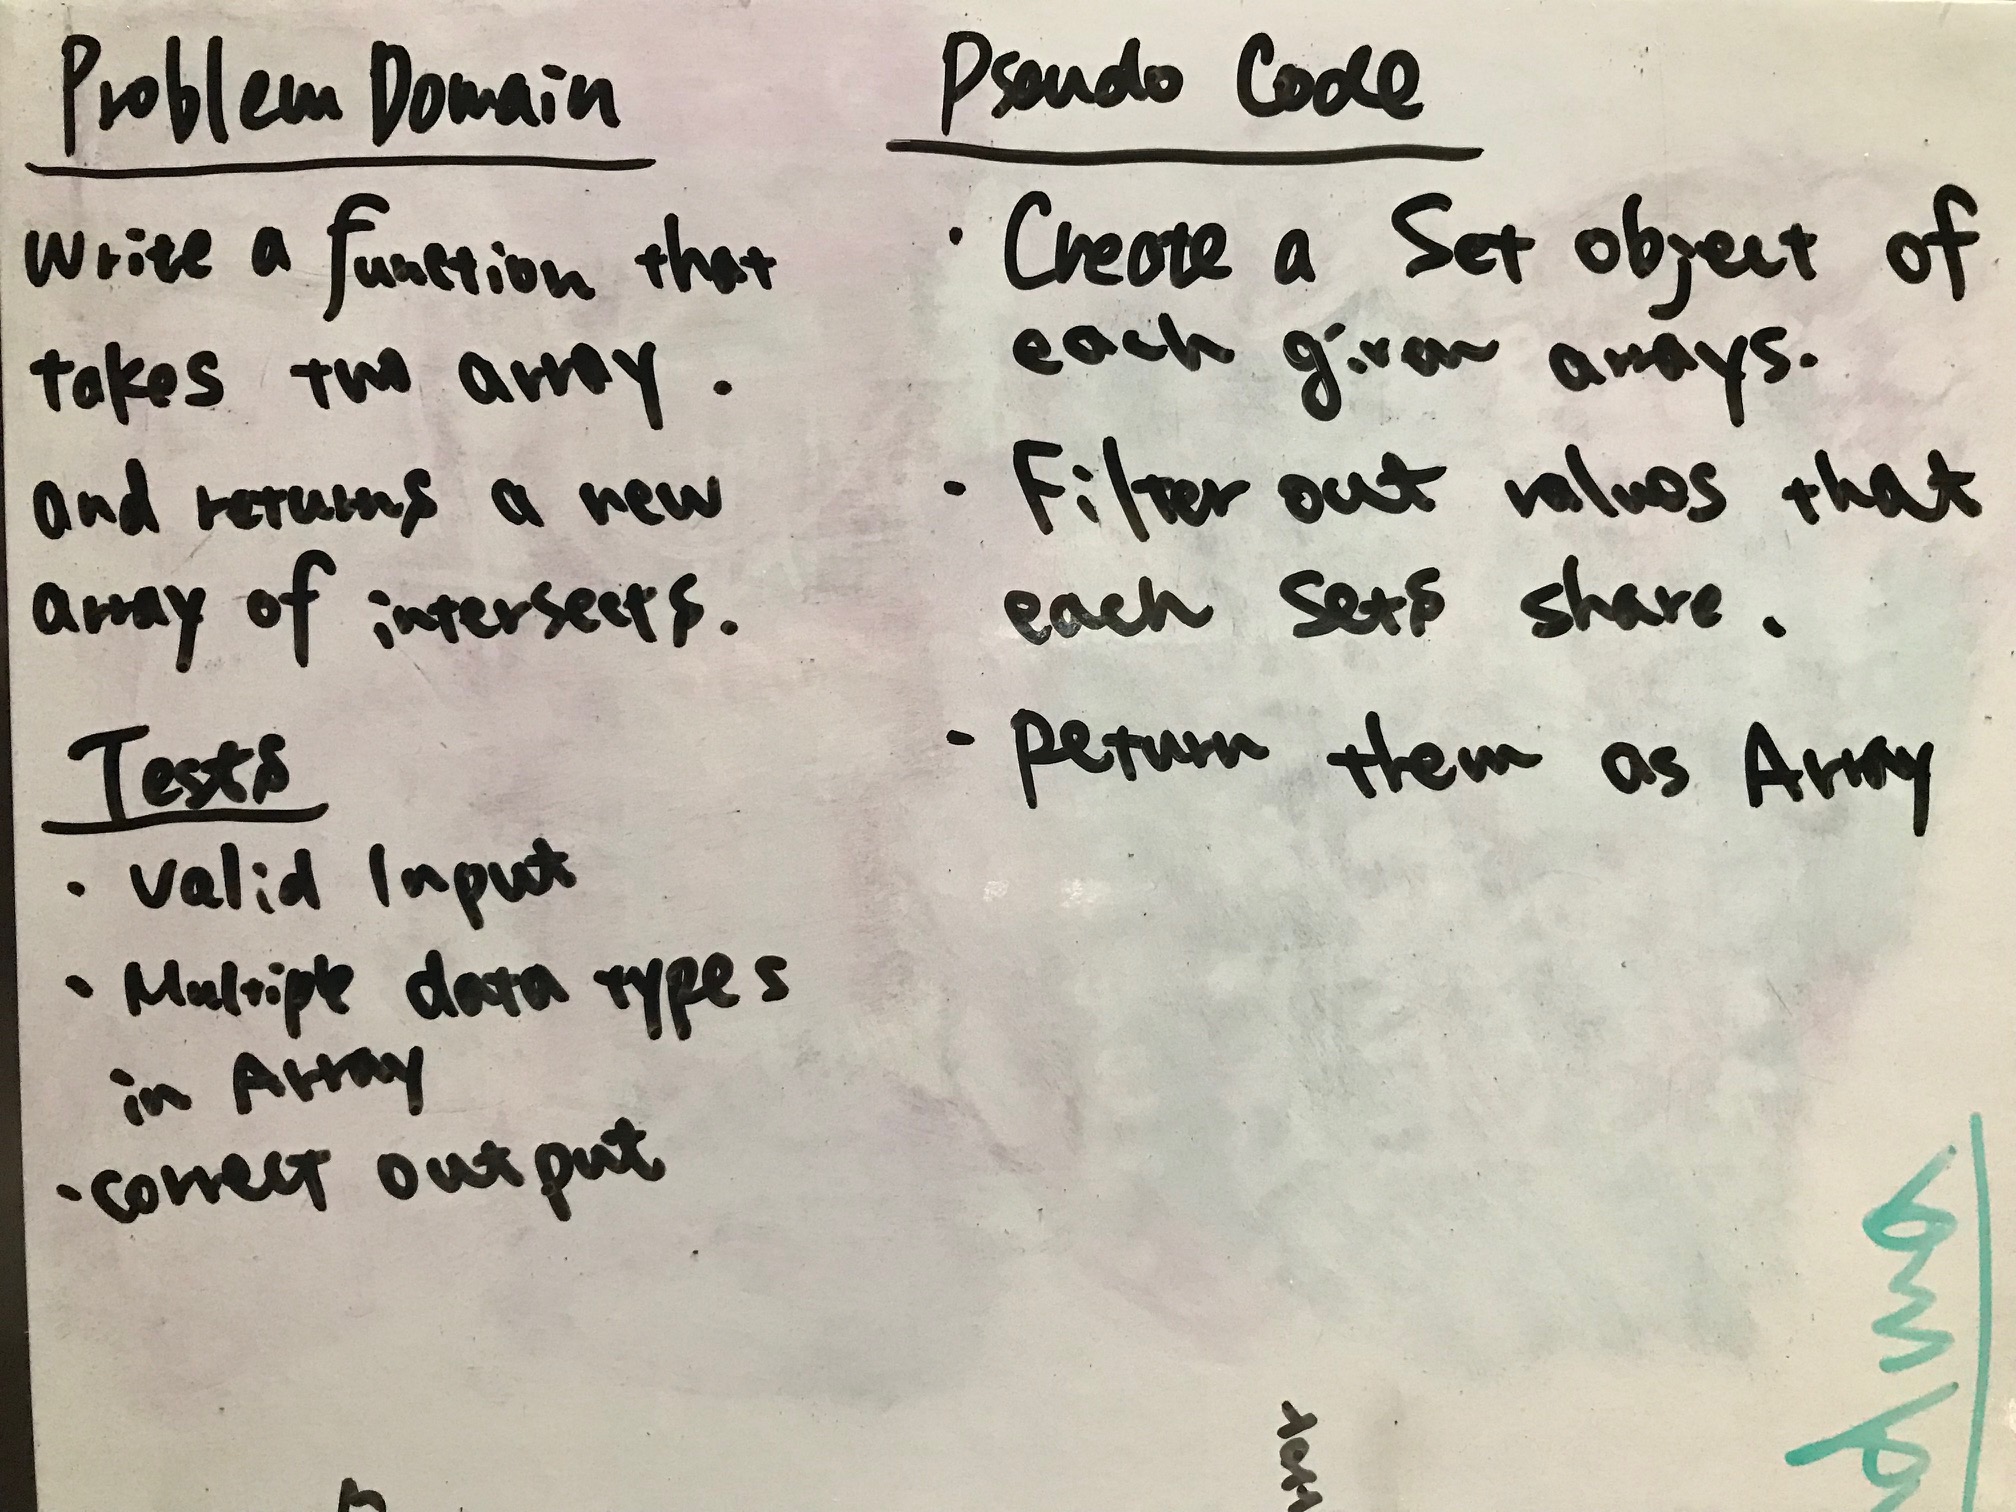 Problem Domain
Write a function that
takes two array.
and returns a new
array of intersects.
Tests
· Valid Input
· Multiple data types
in Array
· correct output
Pseudo Code
· Create a Set object of
each given arrays.
· Filter out values that
each sets share.
· Return them as Array